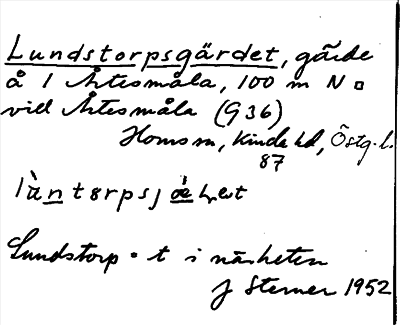 Lundstorpsgärdet, gärde
å 1 Åtesmåla, 100 m N o
vid Åtesmåla (G 36)
Horns sn, Kinda hd, Östg. l.
87
Lundstorp · t i närheten
J Sterner 1952